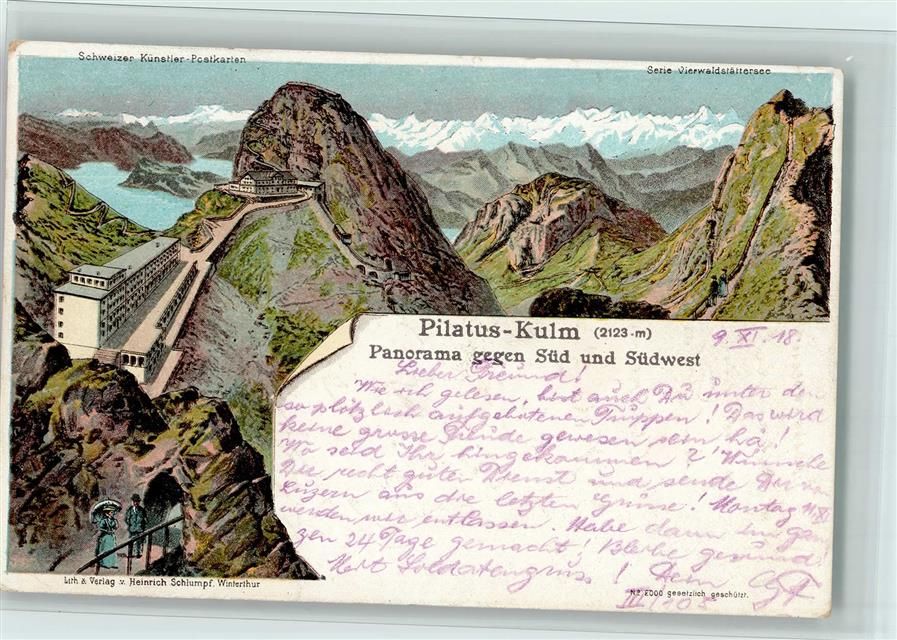 Schweizer Künstler-Postkarten
Serie Vierwaldstättersee
Pilatus-Kulm (2123 m)
Panorama gegen Süd und Südwest
9. XI. 18.
Lieber Freund!
Wie ich gelesen, bist auch Du unter den
so plötzlich aufgebotenen Truppen! Das wird
keine grosse Freude gewesen sein hä!
Wo seid Ihr hingekommen? Wünsche
Dir recht guten Dienst und sende Dir von
Luzern aus die letzten Grüsse! Montag 11. XI.
werden wir entlassen. Habe dann im gan
zen 24 Tage gemacht! Bleibe gesund!
Mit Soldatengruss! Dein
III/105
Lith. & Verlag v. Heinrich Schlumpf, Winterthur
No. 2000 gesetzlich geschützt.